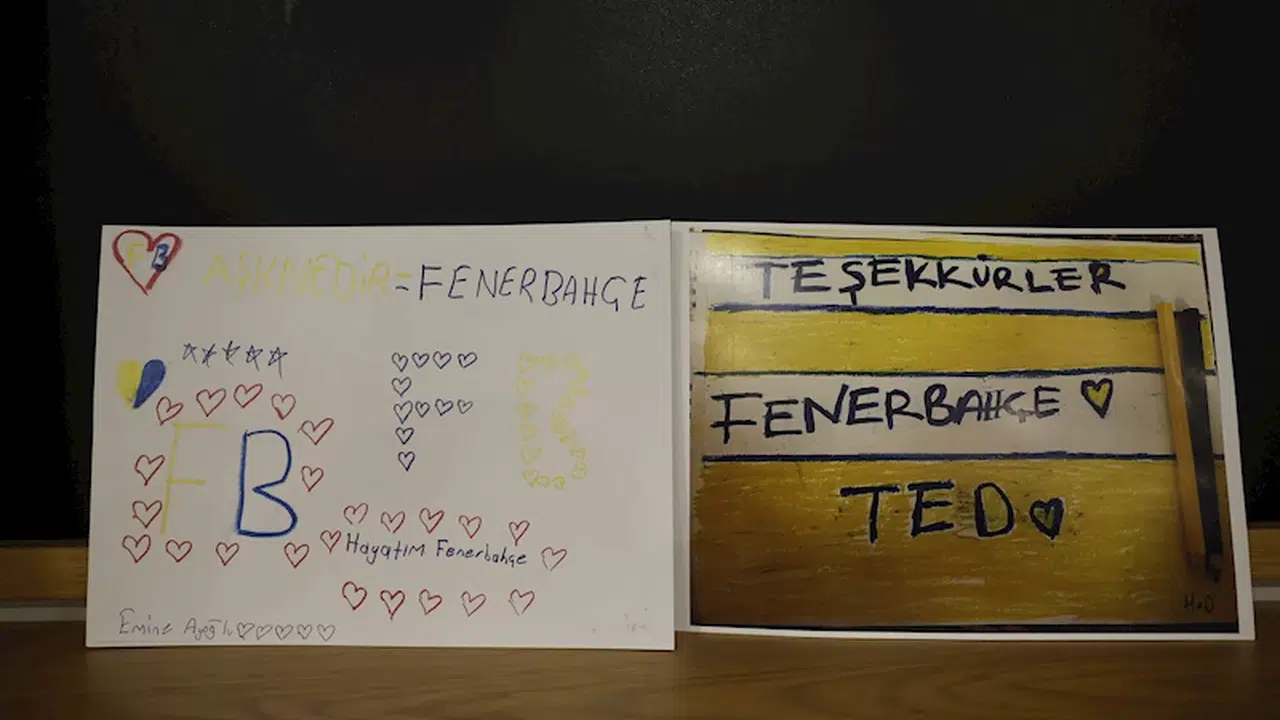 FB
AŞKNEDİR=FENERBAHÇE
FB
Hayatım Fenerbahçe
Emine
TEŞEKKÜRLER
FENERBAHÇE
TED